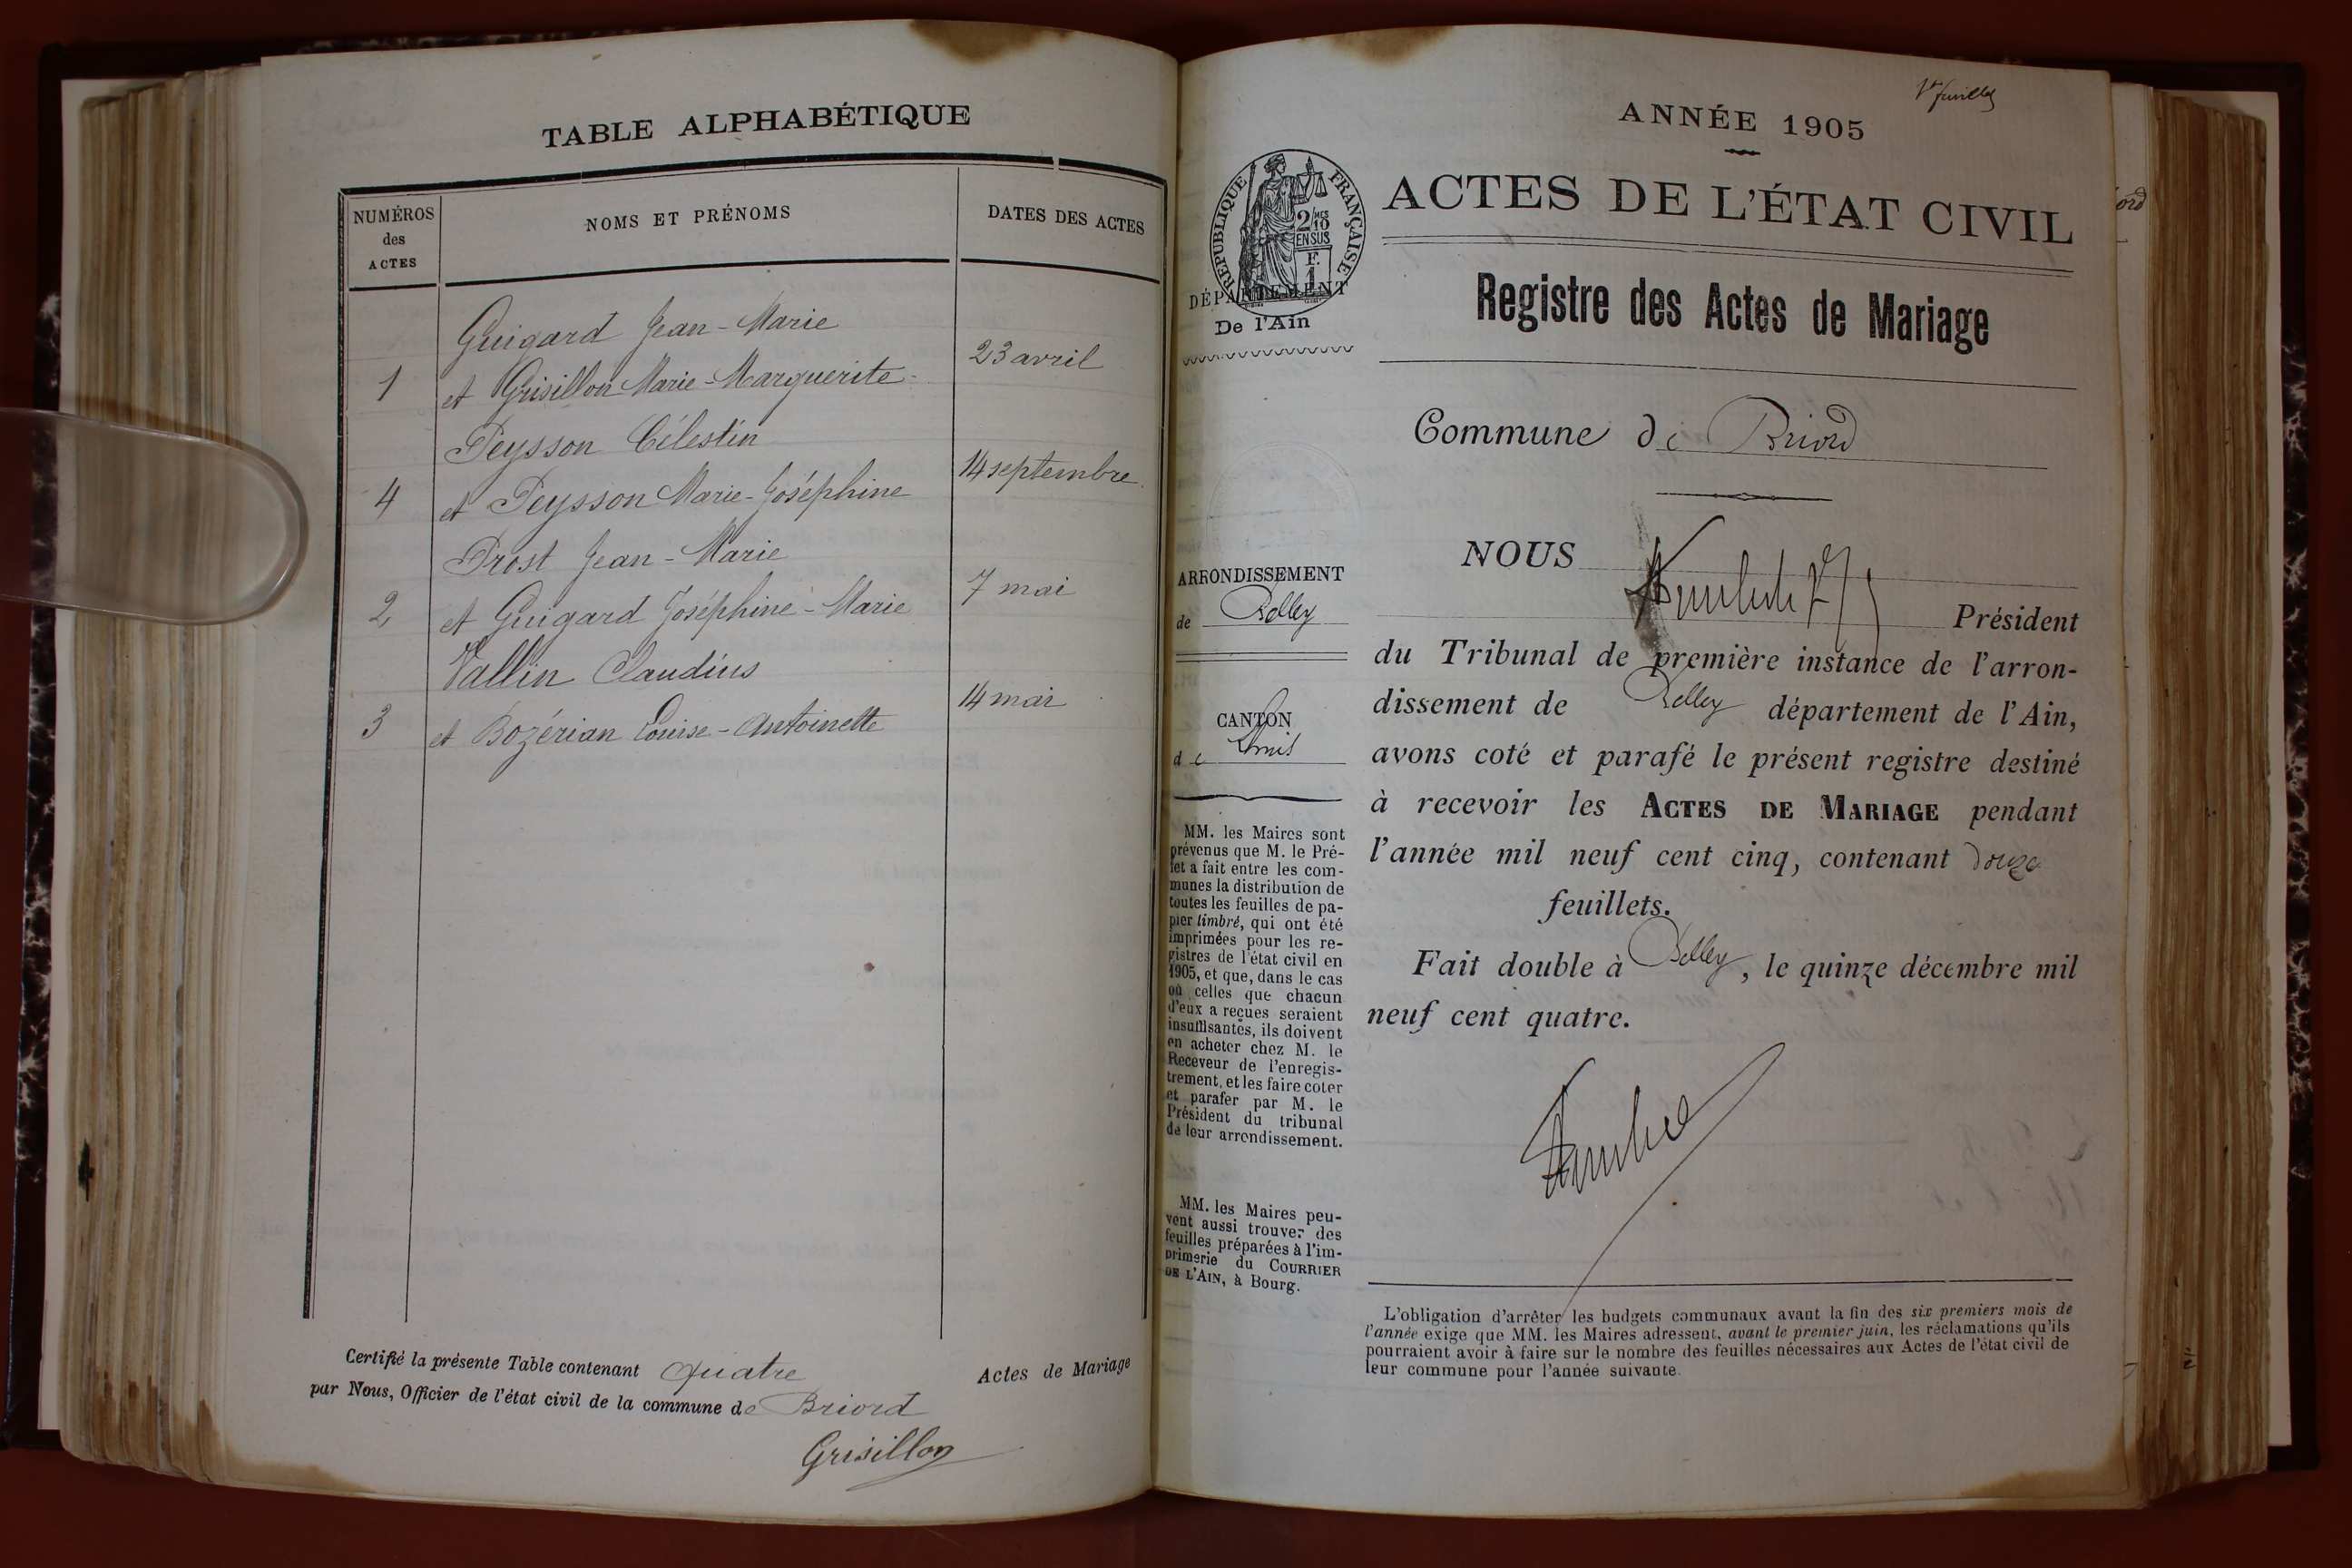 TABLE ALPHABÉTIQUE
NUMÉROS
des
ACTES
NOMS ET PRÉNOMS
DATES DES ACTES
Guigard Jean-Marie
1 et Grisillon Marie-Marguerite 23 avril
Peysson Célestin
4 et Peysson Marie-Joséphine 14 septembre
Prost Jean-Marie
2 et Guigard Joséphine-Marie 7 mai
Vallin Claudius
3 et Bozérian Louise-Antoinette 14 mai
Certifié la présente Table contenant quatre Actes de Mariage
par Nous, Officier de l'état civil de la commune de Briord
Grisillon
ANNÉE 1905
RÉPUBLIQUE FRANÇAISE
2/10
EN SUS
F.
1
DÉPARTEMENT
De l'Ain
ACTES DE L'ÉTAT CIVIL
Registre des Actes de Mariage
Commune de Briord
ARRONDISSEMENT
de Belley
CANTON
de
MM. les Maires sont
prévenus que M. le Pré-
fet a fait entre les com-
munes la distribution de
toutes les feuilles de pa-
pier timbré, qui ont été
imprimées pour les re-
gistres de l'état civil en
1905, et que, dans le cas
où celles que chacun
d'eux a reçues seraient
insuffisantes, ils doivent
en acheter chez M. le
Receveur de l'enregis-
trement, et les faire coter
et parafer par M. le
Président du tribunal
de leur arrondissement.
MM. les Maires peu-
vent aussi trouver des
feuilles préparées à l'im-
primerie du COURRIER
DE L'AIN, à Bourg.
NOUS
Président
du Tribunal de première instance de l'arron-
dissement de Belley département de l'Ain,
avons coté et parafé le présent registre destiné
à recevoir les ACTES DE MARIAGE pendant
l'année mil neuf cent cinq, contenant douze
feuillets.
Fait double à Belley, le quinze décembre mil
neuf cent quatre.
L'obligation d'arrêter les budgets communaux avant la fin des six premiers mois de
l'année exige que MM. les Maires adressent, avant le premier juin, les réclamations qu'ils
pourraient avoir à faire sur le nombre des feuilles nécessaires aux Actes de l'état civil de
leur commune pour l'année suivante.